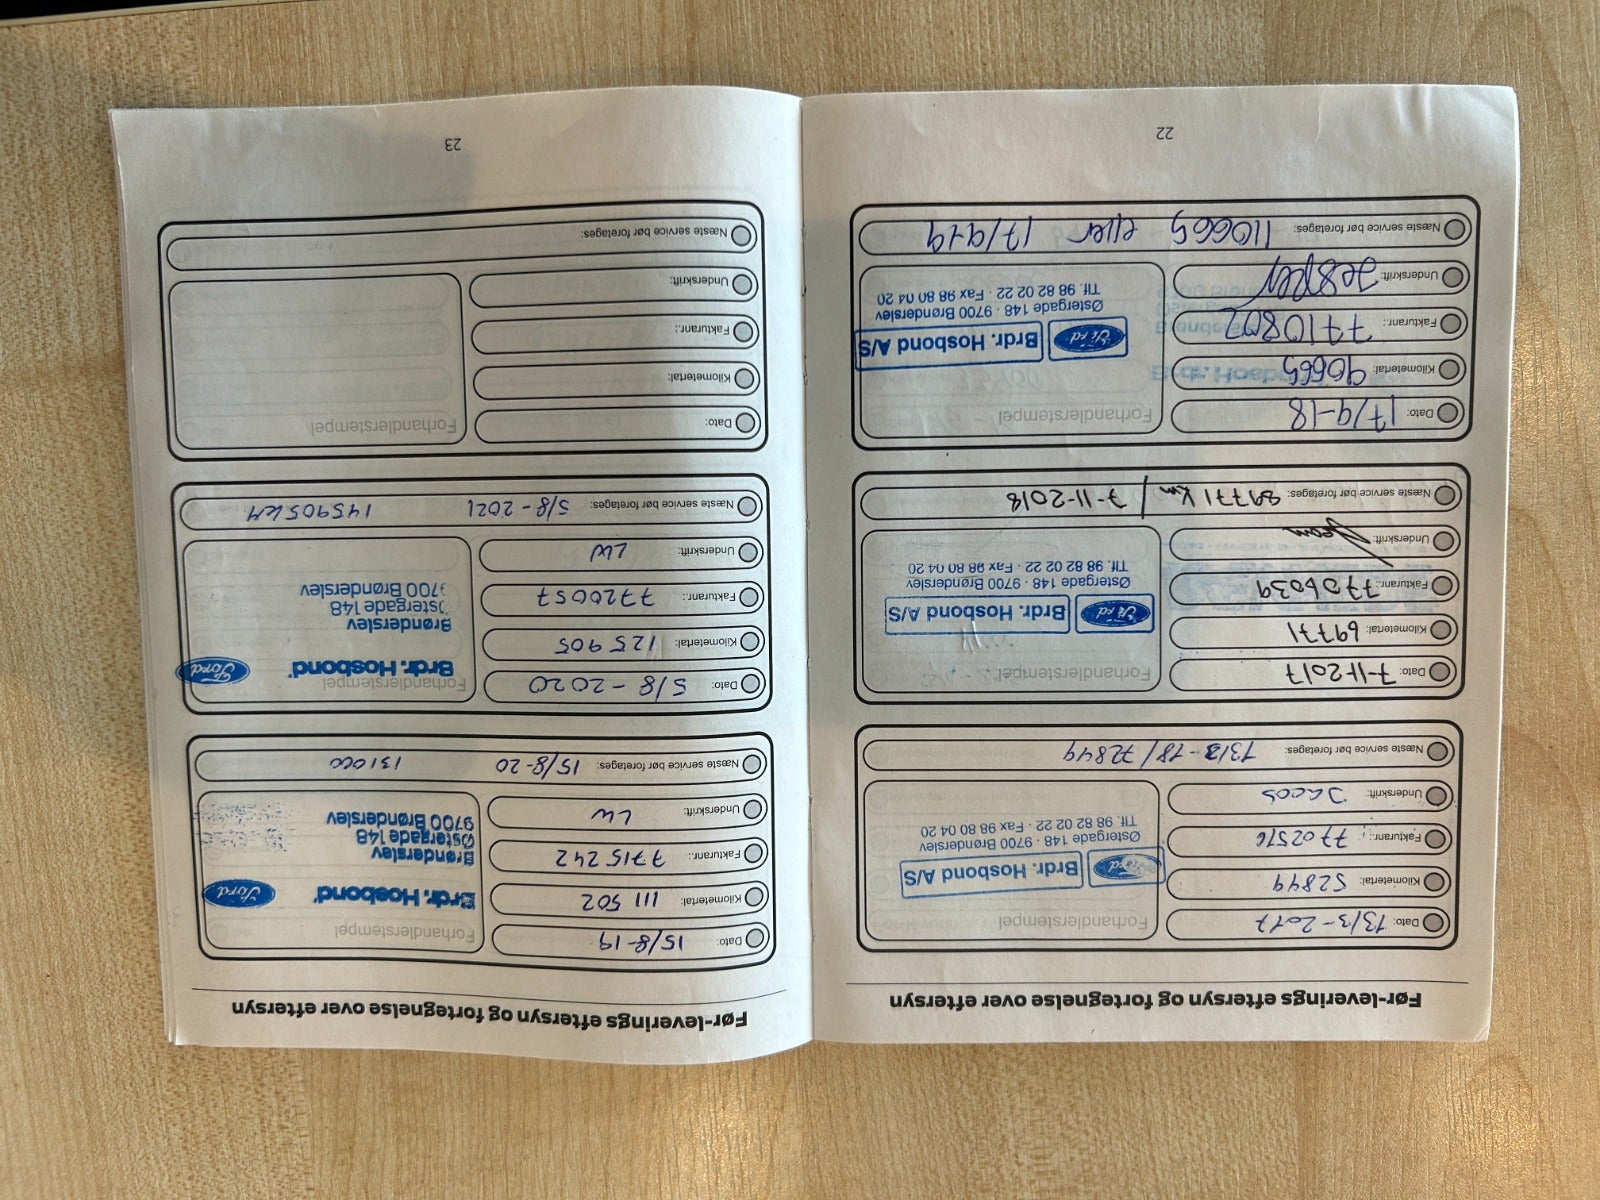 Før-leverings eftersyn og fortegnelse over eftersyn
Dato: 13/3-2017
Kilometertal: 52849
Fakturanr.: 7702516
Underskrift: Jacob
Forhandlerstempel
Ford Brdr. Hosbond A/S
Østergade 148 · 9700 Brønderslev
Tlf. 98 82 02 22 · Fax 98 80 04 20
Næste service bør foretages: 13/3-18/72849
Dato: 7-11-2017
Kilometertal: 69771
Fakturanr.: 7706039
Underskrift:
Forhandlerstempel
Ford Brdr. Hosbond A/S
Østergade 148 · 9700 Brønderslev
Tlf. 98 82 02 22 · Fax 98 80 04 20
Næste service bør foretages: 89771 Km / 7-11-2018
Dato: 17/9-18
Kilometertal: 90665
Fakturanr.: 7710802
Underskrift: Jesper
Forhandlerstempel
Ford Brdr. Hosbond A/S
Østergade 148 · 9700 Brønderslev
Tlf. 98 82 02 22 · Fax 98 80 04 20
Næste service bør foretages: 110665 eller 17/9-19
22
Før-leverings eftersyn og fortegnelse over eftersyn
Dato: 15/8-19
Kilometertal: 111 502
Fakturanr.: 7715242
Underskrift: LW
Forhandlerstempel
Brdr. Hosbond Ford
Brønderslev
Østergade 148
9700 Brønderslev
Næste service bør foretages: 15/8-20 131000
Dato: 5/8-2020
Kilometertal: 125905
Fakturanr.: 7720057
Underskrift: LW
Forhandlerstempel
Brdr. Hosbond Ford
Brønderslev
Østergade 148
9700 Brønderslev
Næste service bør foretages: 5/8-2021 145905 KM
Dato:
Kilometertal:
Fakturanr.:
Underskrift:
Forhandlerstempel
Næste service bør foretages:
23